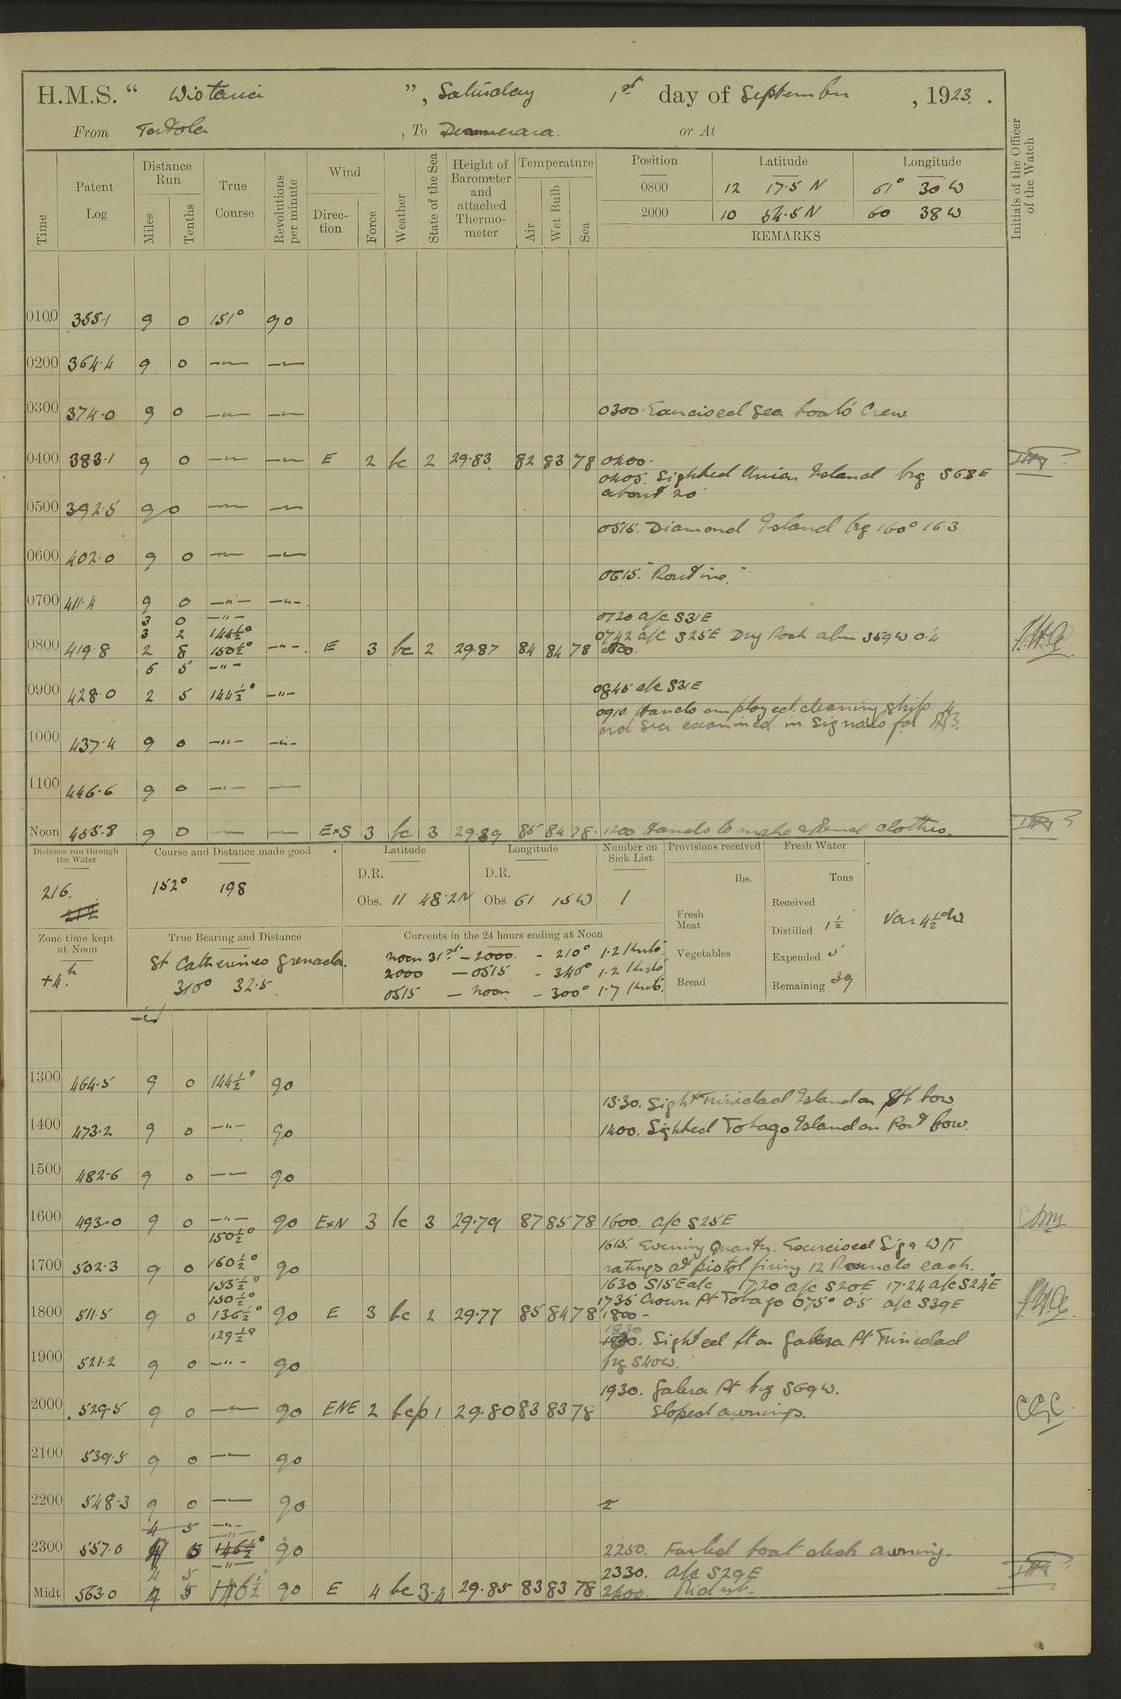 H.M.S. " Wistaria ", Saturday 1st day of September, 1923.
From Tortola, To Demerara. or At
Time
Patent Log
Distance Run
Miles
Tenths
True Course
Revolutions per minute
Wind
Direction
Force
Weather
State of the Sea
Height of Barometer and attached Thermometer
Temperature
Air
Wet Bulb
Sea
Position Latitude Longitude
0800 12 17.5 N 61° 30 W
2000 10 54.5 N 60 38 W
REMARKS
Initials of the Officer of the Watch
0100 355.1 9 0 151° 90
0200 364.4 9 0 —"— —"—
0300 374.0 9 0 —"— —"— 0300. Exercised Sea boats Crew
0400 383.1 9 0 —"— —"— E 2 bc 2 29.83 82 83 78 0400.
0405. Sighted Union Island brg S68E
about 20'
0500 392.5 9 0 —"— —"—
0515. Diamond Island brg 160° 16.3
0600 402.0 9 0 —"— —"—
0615. "Routine."
0700 411.4 9 0 —"— —"—
3 0 —"— 0720 a/c S31E
3 2 144½° 0742 a/c S25E Dry Rock abm S59W 0.4
0800 419.8 2 8 150½° —"— E 3 bc 2 29.87 84 84 78 0800.
6 5 —"—
0845 a/c S31E
0900 428.0 2 5 144½° —"—
0910. Hands employed cleaning ship. 4
ord Sea examined in Signals for AB.
1000 437.4 9 0 —"— —"—
1100 446.6 9 0 —"— —"—
Noon 455.8 9 0 — — ExS 3 bc 3 29.89 85 84 78. 1200 Hands to make & mend clothes.
Distance run through the Water
216.
212
Course and Distance made good
152° 198
Latitude
D.R.
Obs. 11 48.2N
Longitude
D.R.
Obs 61 15W
Number on Sick List
1
Provisions received
lbs.
Fresh Meat
Vegetables
Bread
Fresh Water
Tons
Received
Distilled 1½
Expended 5
Remaining 39
Var 4½°W
Zone time kept at Noon
+4h.
True Bearing and Distance
St Catherines Grenada.
310° 32.5.
Currents in the 24 hours ending at Noon
Noon 31st — 2000. - 210° 1.2 Knts.
2000 — 0515 - 340° 1.2 Knts
0515 — Noon - 300° 1.7 Knts.
1300 464.5 9 0 144½° 90
13.30. Sight Trinidad Island on Stb bow
1400 473.2 9 0 —"— 90 1400. Sighted Tobago Island on Port bow.
1500 482.6 9 0 —"— 90
1600 493.0 9 0 —"— 90 ExN 3 bc 3 29.79 87 85 78 1600. a/c S25E
150½°
1615. Evening Quarters. Exercised Sig & W/T
1700 502.3 9 0 160½° 90 ratings at pistol firing 12 Rounds each.
155½° 1630 S15E a/c 17.20 a/c S20E 17.24 a/c S24E
150½° 1735 Crown Pt Tobago 075° 0.5 a/c S39E
1800 511.5 9 0 136½° 90 E 3 bc 2 29.77 85 84 78 1800 -
129½°
1830. Sighted lt on Galera Pt Trinidad
1900 521.2 9 0 —"— 90 brg S40W.
1930. Galera Pt brg S69W.
2000 529.5 9 0 —"— 90 ENE 2 bc/p 1 29.80 83 83 78 Sloped awnings. CGC
2100 539.5 9 0 —"— 90
2200 548.3 9 0 —"— 90
4 5 —"—
2300 557.0 4 5 146½° 90 2250. Furled boat deck awning.
4 5 —"— 2330. a/c S29E
Midt 563.0 4 5 146½ 90 E 4 bc 3.4 29.85 83 83 78 2400. Midnt.